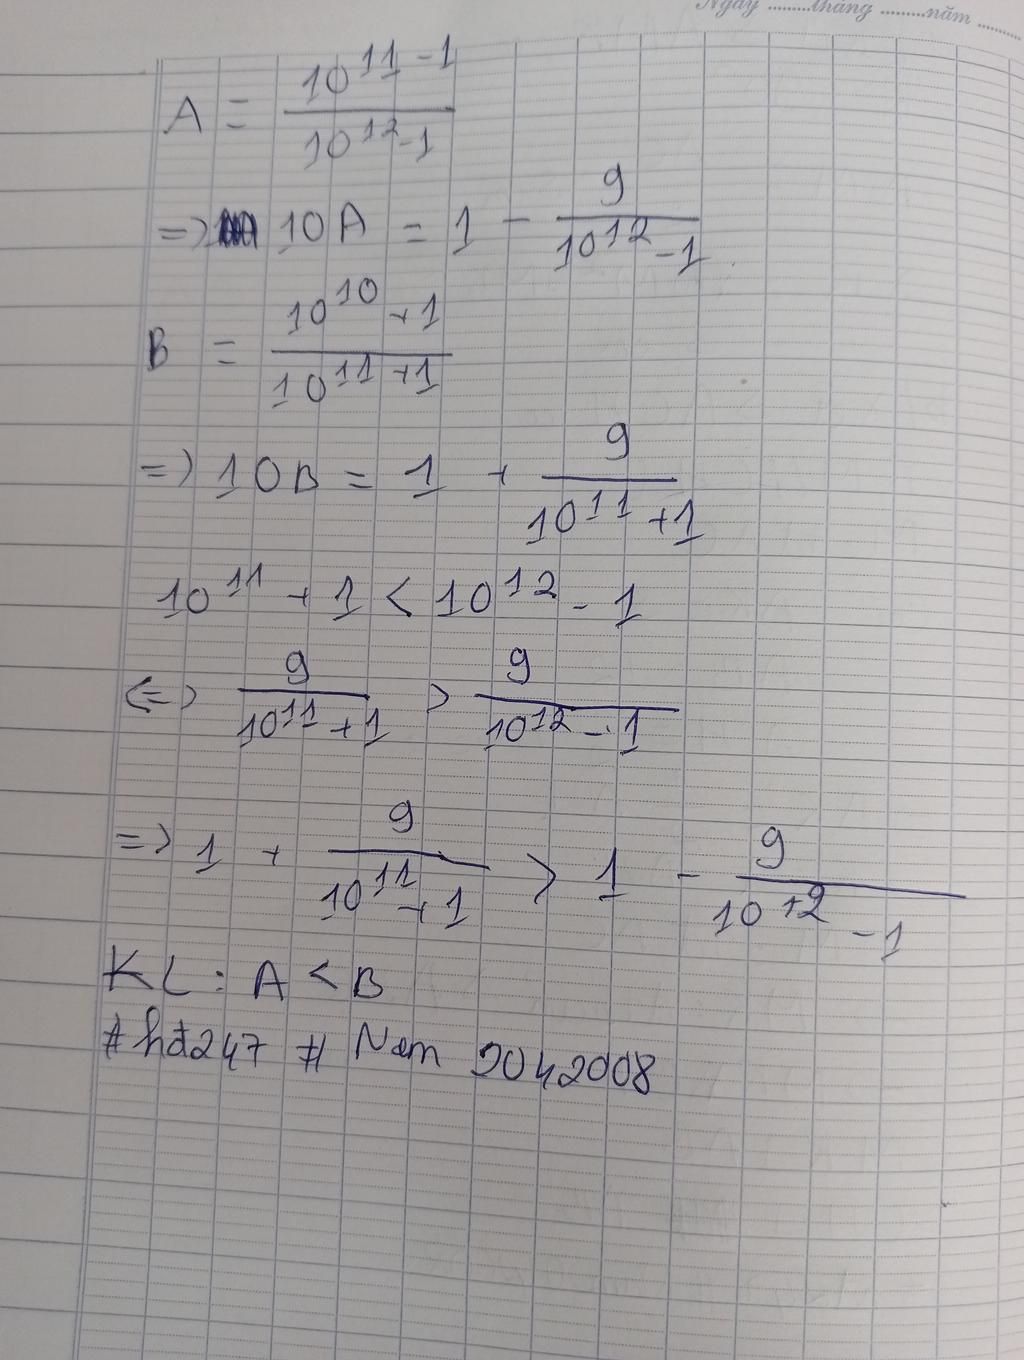 Ngày ........tháng ........năm ........
A = \frac{10^{11}-1}{10^{12}-1}
=> 10A = 1 - \frac{9}{10^{12}-1}
B = \frac{10^{10}+1}{10^{11}+1}
=> 10B = 1 + \frac{9}{10^{11}+1}
10^{11} + 1 < 10^{12} - 1
<=> \frac{9}{10^{11}+1} > \frac{9}{10^{12}-1}
=> 1 + \frac{9}{10^{11}+1} > 1 - \frac{9}{10^{12}-1}
KL: A < B
#hđ247 # Nam 9042008